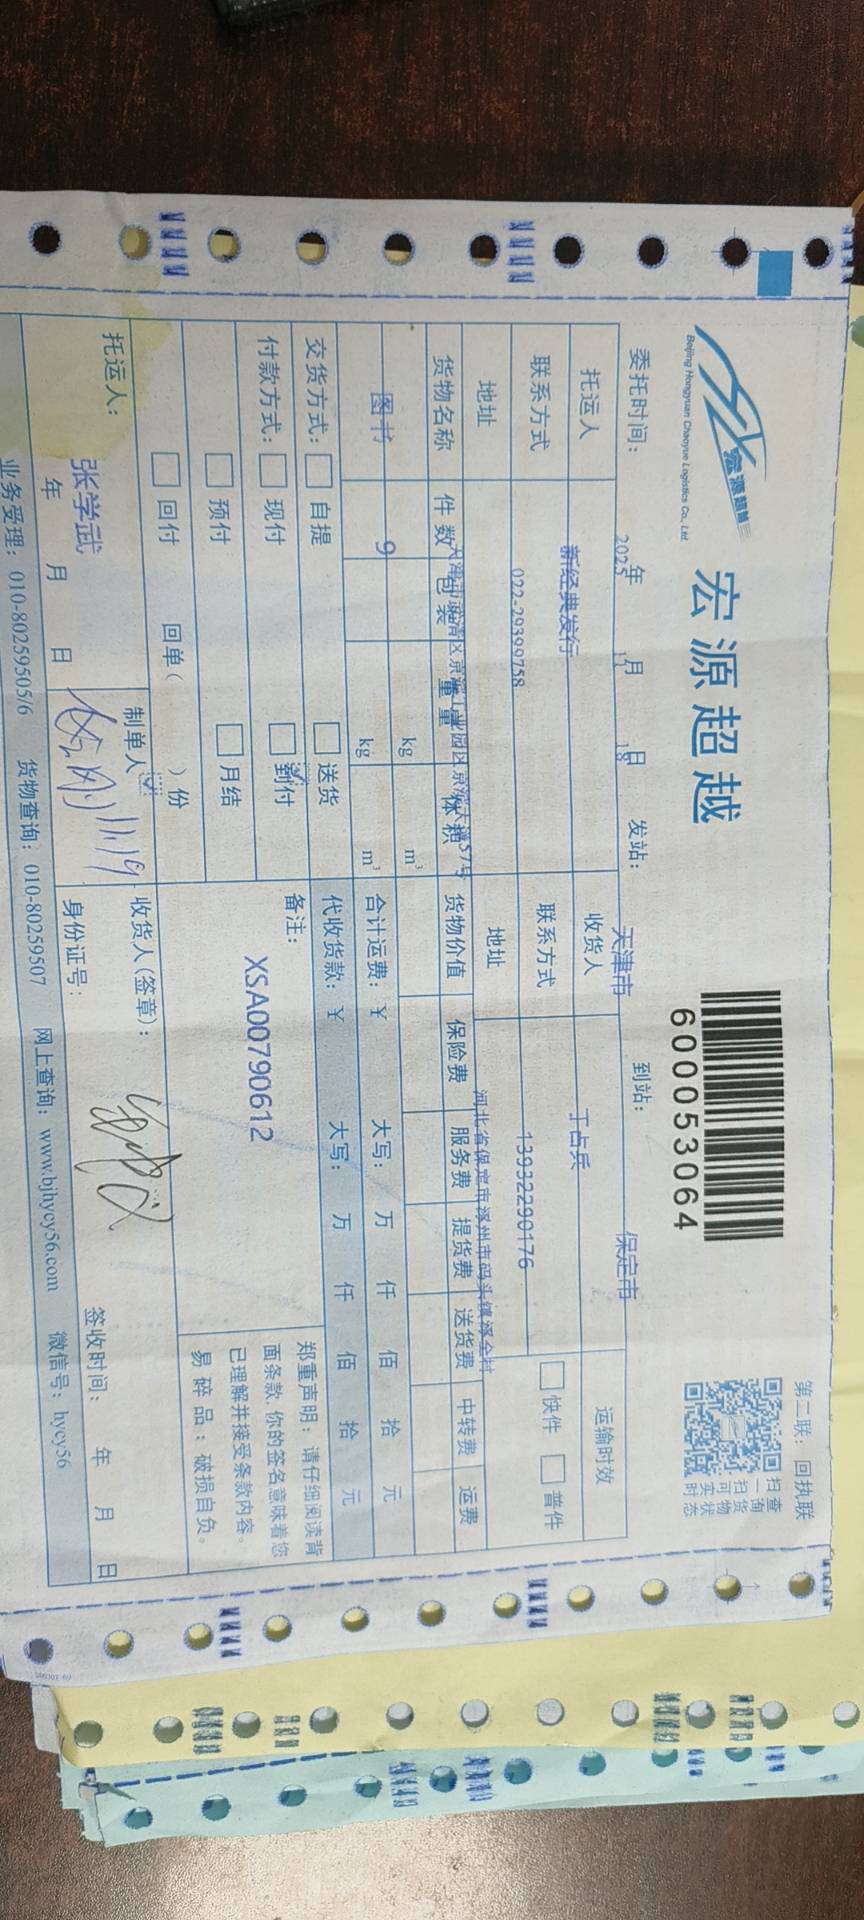 第二联：回执联
宏源超越
Beijing Hongyuan Chaoyue Logistics Co., Ltd
宏源超越
600053064
扫一扫可实时
查询货物状态
委托时间： 2025年 11月 18日 发站： 天津市 到站： 保定市
托运人 新经典发行 收货人 于占兵 运输时效
联系方式 022-29399758 联系方式 13932290176 快件 普件
地址 天津市武清区京滨工业园区京滨大道57号 地址 河北省保定市涿州市码头镇泽全村
货物名称 件数 包装 重量 体积 货物价值 保险费 服务费 提货费 送货费 中转费 运费
kg m³
图书 9 kg m³ 合计运费：￥ 大写： 万 仟 佰 拾 元
交货方式： 自提 送货 代收货款：￥ 大写： 万 仟 佰 拾 元
付款方式： 现付 到付 备注：
预付 月结 XSA00790612
回付 回单( )份
郑重声明：请仔细阅读背
面条款,你的签名意味着您
已理解并接受条款内容。
易碎品：破损自负。
托运人： 张学武 制单人 收货人(签章)：
年 月 日 身份证号： 签收时间： 年 月 日
业务受理：010-80259505/6 货物查询：010-80259507 网上查询：www.bjhycy56.com 微信号：hycy56